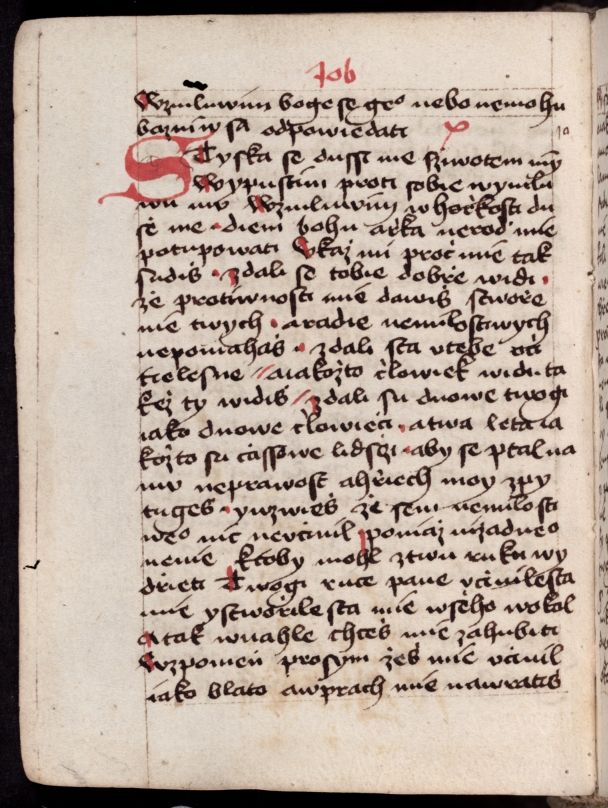 Job
Wzmluwim boge se geº nebo nemohu
bazniw sa odpowiedati
x
Styska se dussi me sziwotem mÿ
Wypustim proti sobie wymlu
wu mv Wzmluwim w horzkosti du
ssė me · diem bohu arzka nerod mie
potupowati Vkaż mi procz mie tak
sudiß · zdali se tobie dobrze widi ·
że protiwnosti mie dawiß stworze
nie twych · aradie nemilostiwych
nepomahaß · zdali sta v tebe oczi
tielesne // aiakożto czlowiek widi ta
keż ty widiß // zdali su dnowe twogi
iako dnowe czlowieci · atwa leta ia
kożto su czassowe lidsczi · aby se ptal na
mv neprawost ahrziech moy zpy
tugeß · ywzwieß że sem nemilosti
weº nic nevczinil poniaż nizadneº
nenie ktoby mohl ztwu ruku wy
drzieti Twogi ruce pane vczinilesta
mie ystworzilesta mie wßeho wokol
a tak wnahle chceß mie zahubiti
Wzpomen prosym żeß mie vczinil
iako blato awprach mie nawratiß